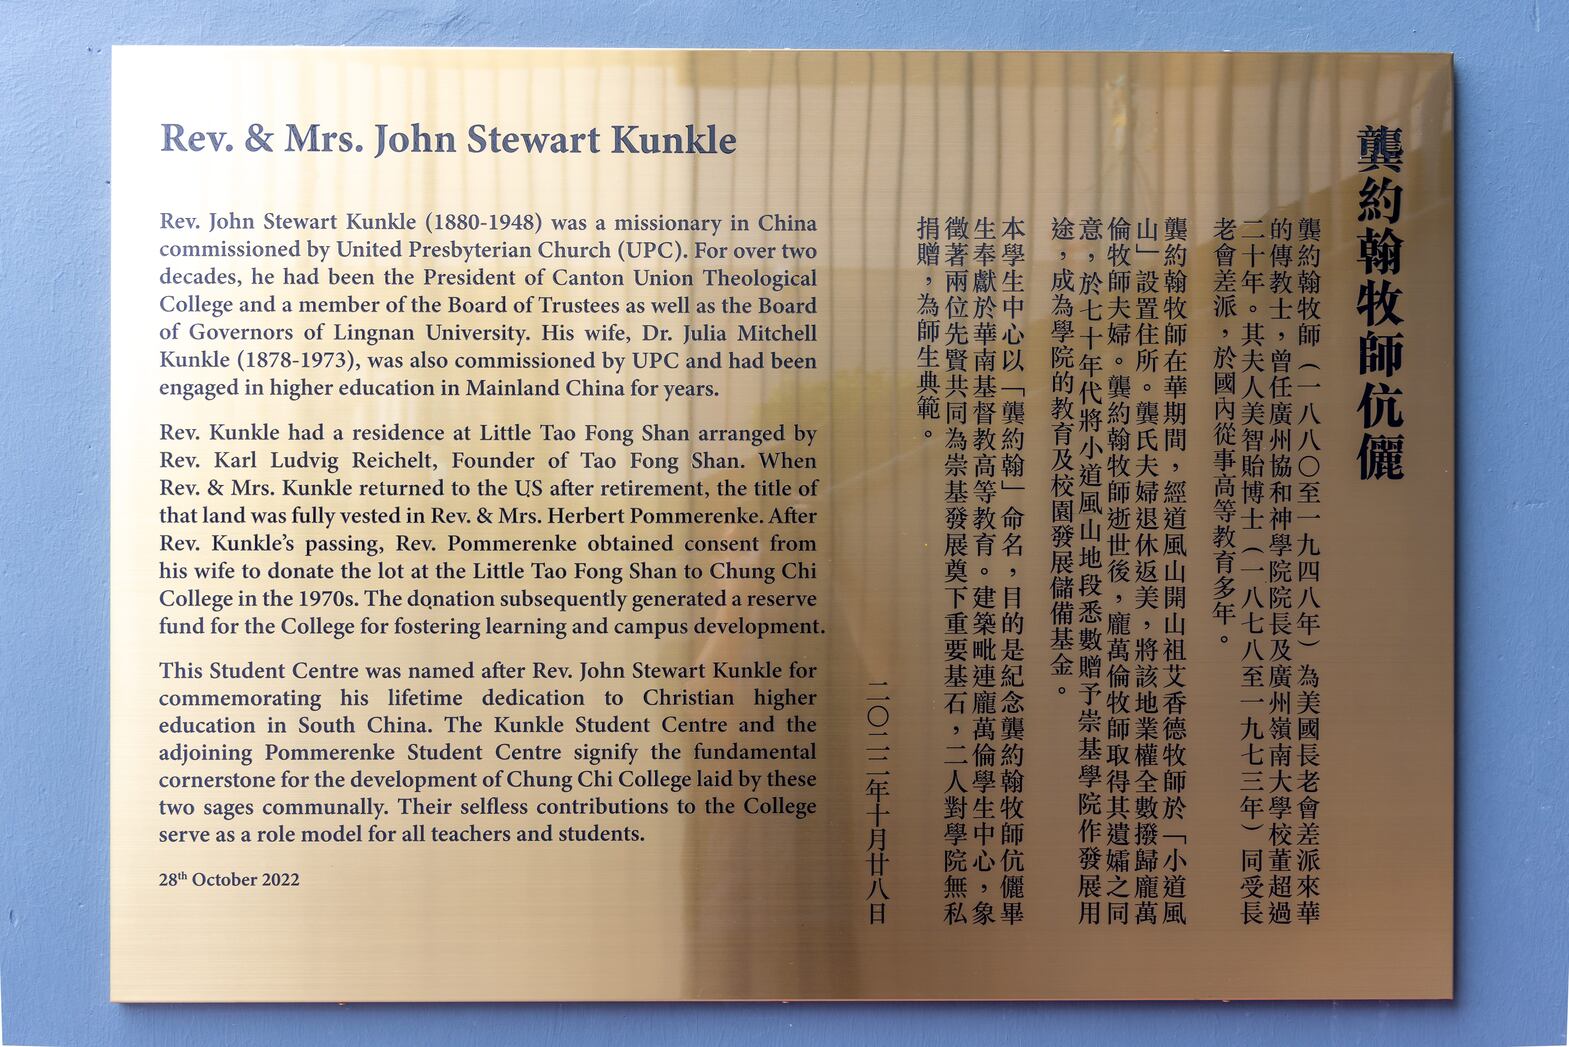 Rev. & Mrs. John Stewart Kunkle
Rev. John Stewart Kunkle (1880-1948) was a missionary in China
commissioned by United Presbyterian Church (UPC). For over two
decades, he had been the President of Canton Union Theological
College and a member of the Board of Trustees as well as the Board
of Governors of Lingnan University. His wife, Dr. Julia Mitchell
Kunkle (1878-1973), was also commissioned by UPC and had been
engaged in higher education in Mainland China for years.
Rev. Kunkle had a residence at Little Tao Fong Shan arranged by
Rev. Karl Ludvig Reichelt, Founder of Tao Fong Shan. When
Rev. & Mrs. Kunkle returned to the US after retirement, the title of
that land was fully vested in Rev. & Mrs. Herbert Pommerenke. After
Rev. Kunkle's passing, Rev. Pommerenke obtained consent from
his wife to donate the lot at the Little Tao Fong Shan to Chung Chi
College in the 1970s. The donation subsequently generated a reserve
fund for the College for fostering learning and campus development.
This Student Centre was named after Rev. John Stewart Kunkle for
commemorating his lifetime dedication to Christian higher
education in South China. The Kunkle Student Centre and the
adjoining Pommerenke Student Centre signify the fundamental
cornerstone for the development of Chung Chi College laid by these
two sages communally. Their selfless contributions to the College
serve as a role model for all teachers and students.
28th October 2022
龔約翰牧師伉儷
龔約翰牧師（一八八〇至一九四八年）為美國長老會差派來華
的傳教士，曾任廣州協和神學院院長及廣州嶺南大學校董超過
二十年。其夫人美智貽博士（一八七八至一九七三年）同受長
老會差派，於國內從事高等教育多年。
龔約翰牧師在華期間，經道風山開山祖艾香德牧師於「小道風
山」設置住所。龔氏夫婦退休返美，將該地業權全數撥歸龐萬
倫牧師夫婦。龔約翰牧師逝世後，龐萬倫牧師取得其遺孀之同
意，於七十年代將小道風山地段悉數贈予崇基學院作發展用
途，成為學院的教育及校園發展儲備基金。
本學生中心以「龔約翰」命名，目的是紀念龔約翰牧師伉儷畢
生奉獻於華南基督教高等教育。建築毗連龐萬倫學生中心，象
徵著兩位先賢共同為崇基發展奠下重要基石，二人對學院無私
捐贈，為師生典範。
二〇二二年十月廿八日